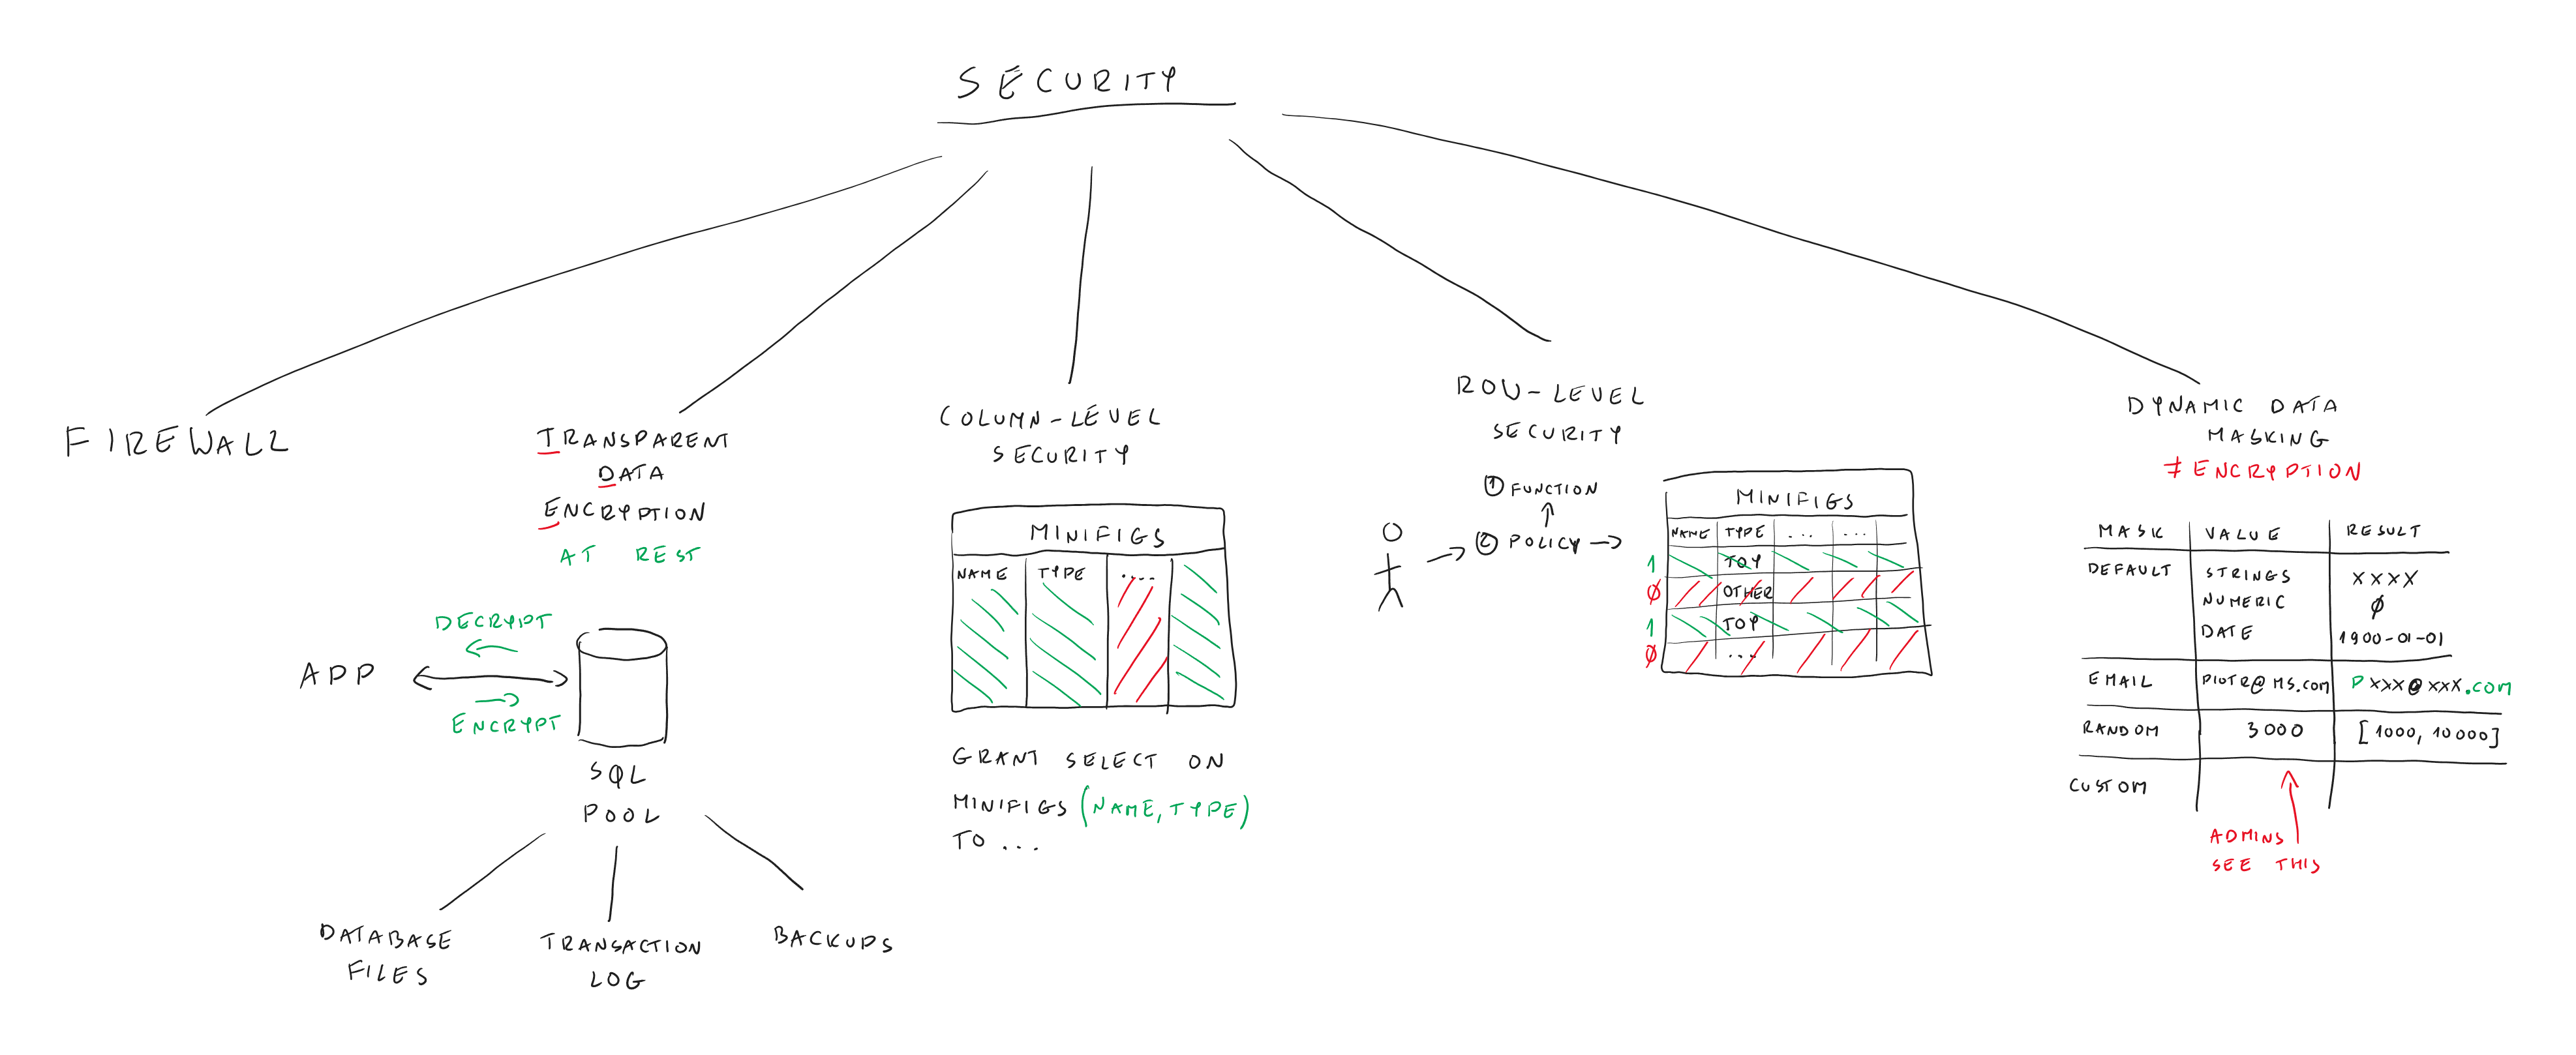 SECURITY
FIREWALL
TRANSPARENT
DATA
ENCRYPTION
AT REST
DECRYPT
APP
ENCRYPT
SQL
POOL
DATABASE
FILES
TRANSACTION
LOG
BACKUPS
COLUMN-LEVEL
SECURITY
MINIFIGS
NAME TYPE ....
GRANT SELECT ON
MINIFIGS (NAME, TYPE)
TO ...
ROW-LEVEL
SECURITY
1 FUNCTION
2 POLICY
MINIFIGS
NAME TYPE ... ...
1 TOY
0 OTHER
1 TOY
0 ...
DYNAMIC DATA
MASKING
≠ ENCRYPTION
MASK VALUE RESULT
DEFAULT STRINGS XXXX
NUMERIC 0
DATE 1900-01-01
EMAIL PIOTR@MS.COM PXXX@XXX.COM
RANDOM 3000 [1000, 10000]
CUSTOM
ADMINS
SEE THIS